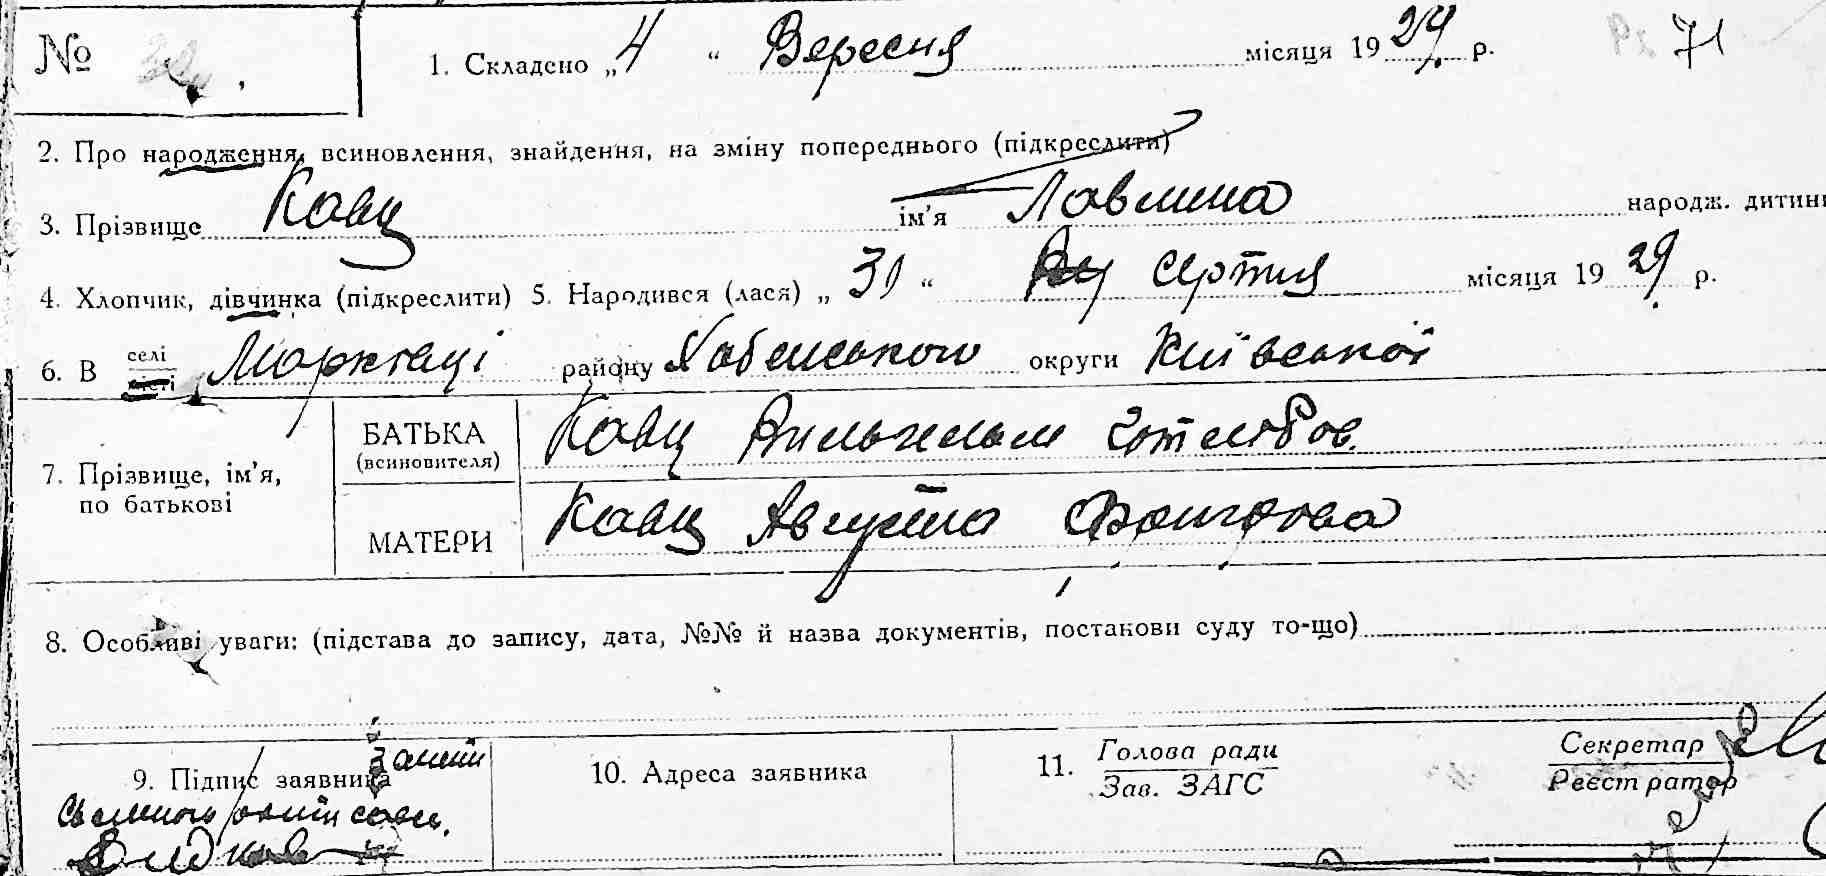 №
1. Складено „4“ Вересня місяця 1929 р. 71
2. Про народження, всиновлення, знайдення, на зміну попереднього (підкреслити)
3. Прізвище Кавц ім’я Павлина народж. дитини
4. Хлопчик, дівчинка (підкреслити) 5. Народився (лася) „31“ серпня місяця 1929 р.
6. В селі місті району Хабенського округи Київської
7. Прізвище, ім’я, по батькові
БАТЬКА (всиновителя) Кавц Вильгельм Готлібов.
МАТЕРИ Кавц Августа
8. Особливі уваги: (підстава до запису, дата, №№ й назва документів, постанови суду то-що)
9. Підпис заявника
10. Адреса заявника
11. Голова ради
Зав. ЗАГС
Секретар
Реєстратор